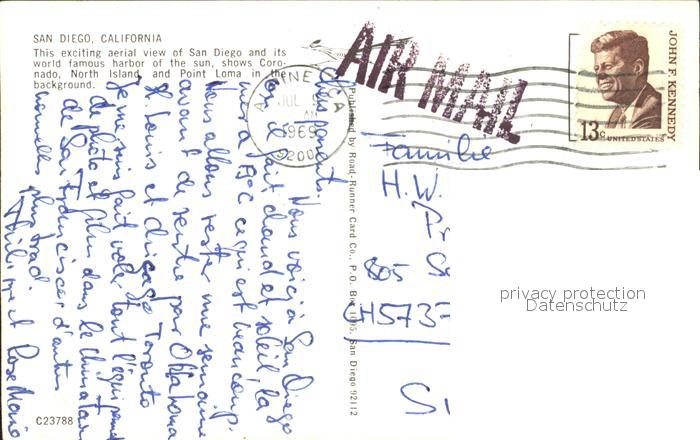 SAN DIEGO, CALIFORNIA
This exciting aerial view of San Diego and its
world famous harbor of the sun, shows Coro-
nado, North Island, and Point Loma in the
background.
AIR MAIL
JUL
AM
1969
JOHN F. KENNEDY
13c
UNITED STATES
Chers parents. Nous voici à San Diego
où il fait chaud et soleil, la
mer à 18C ce qui est beaucoup.
Nous allons rester une semaine
avant de rentrer par Oklahoma
St. Louis et Chicago Toronto
Je me suis fait voler tout l'équipement
de photo et film dans le Chinatown
de San Francisco. d'autres
nouvelles plus tard.
Philippe et Rose Marie
Published by Road-Runner Card Co., P.O. Box 1095, San Diego 92112
Famille
H.W.
805
CH573
C23788
privacy protection
Datenschutz